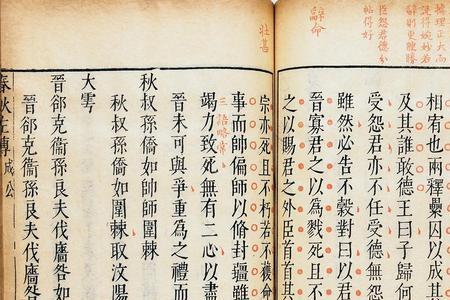 據理正大而
説得婉妙若
臣怨君德分
帖得好
辭命
壯甚
相宥也兩釋纍囚以成
及其誰敢德王曰子歸何
受怨君亦不任受德無怨
雖然必告不穀對曰以君
晉寡君之以為戮死且不
之以賜君之外臣首首其
宗亦死且不朽若不獲命
事而帥偏師以脩封疆雖
三語略
竭力致死無有二心以盡
晉未可與爭重為之禮而
秋叔孫僑如帥師圍棘
秋叔孫僑如圍棘取汶陽
大雩
晉郤克衞孫良夫伐廧咎如
晉郤克衞孫良夫伐廧咎如
春秋左傳 成公